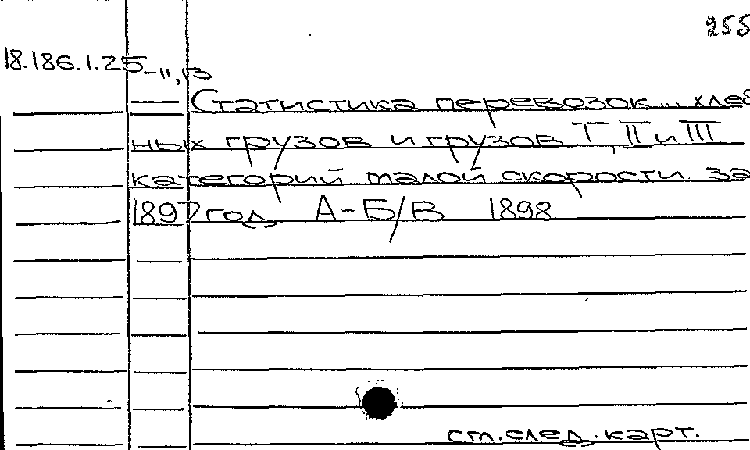 255
18.186.1.25-11,13
— Статистика перевозок... хлеб
ных грузов и грузов I, II и III
категорий малой скорости за
1897 год. А-Б/В 1898
ст.след.карт.